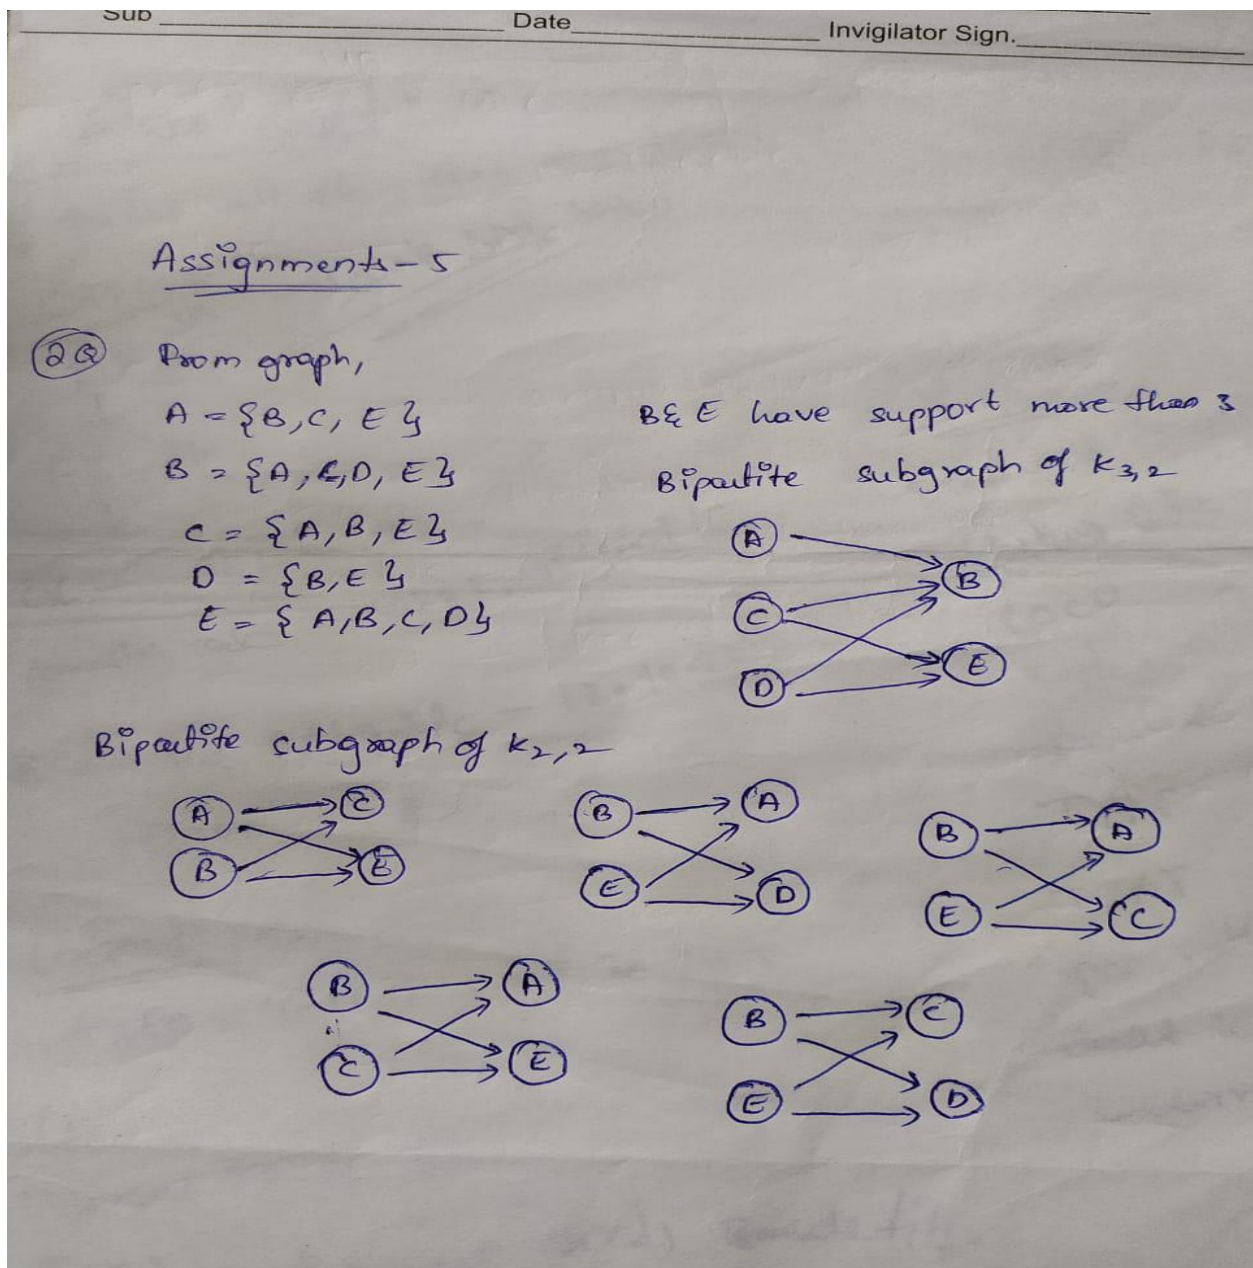 Sub Date Invigilator Sign.
Assignments - 5
2Q From graph,
A = {B, C, E}
B = {A, C, D, E}
C = {A, B, E}
D = {B, E}
E = {A, B, C, D}
B & E have support more than 3
Bipartite subgraph of K3,2
A
B
C
E
D
Bipartite subgraph of K2,2
A C
B E
B A
E D
B A
E C
B A
C E
B C
E D